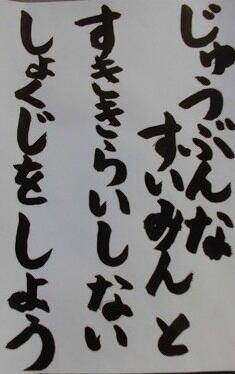 じゅうぶんな
すいみんと
すききらいしない
しょくじをしよう